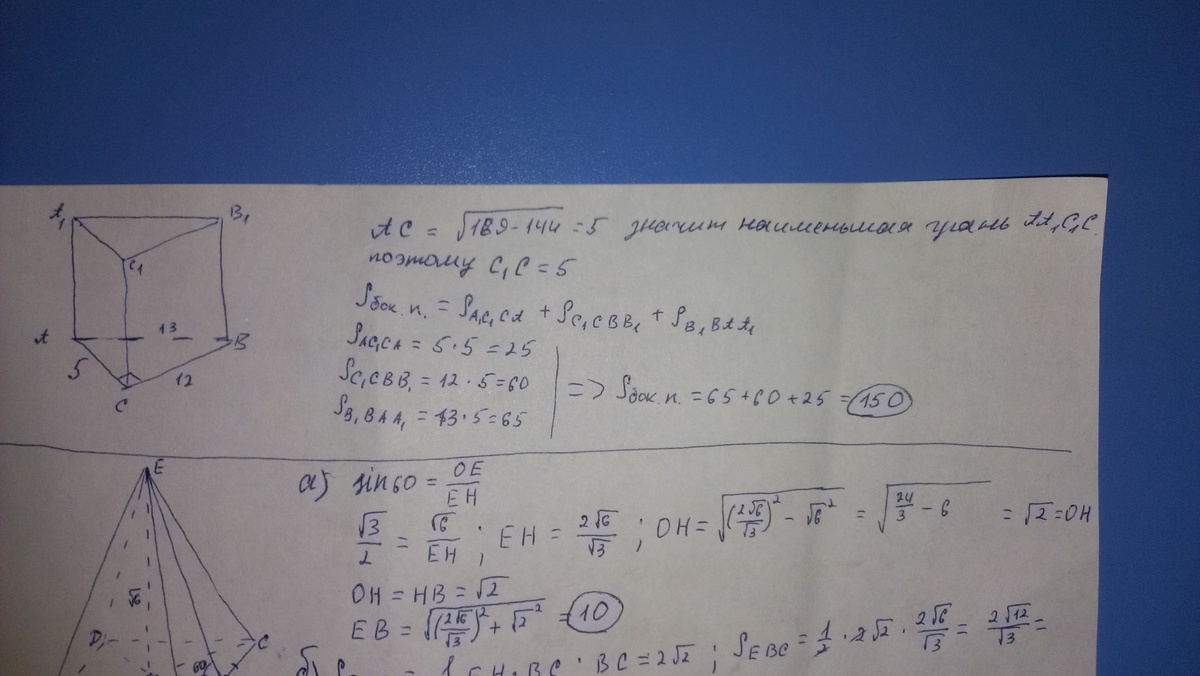 A₁ B₁
C₁
A 13 B
5 12
C
AC = √189-144 = 5 значит наименьшая грань AA₁C₁C.
поэтому C₁C = 5
Sбок. п. = SA₁C₁CA + SC₁CBB₁ + SB₁BAA₁
SAC₁CA = 5·5 = 25
SC₁CBB₁ = 12·5=60
SB₁BAA₁ = 13·5=65
=> Sбок. п. = 65+60+25 = 150
E
√6
D C
60
а) sin60 = OE/EH
√3/2 = √6/EH ; EH = 2√6/√3 ; OH = √(2√6/√3)² - √6² = √24/3 - 6 = √2 = OH
OH = HB = √2
EB = √(2√6/√3)² + √2² = 10
б) S = 1 EH·BC ; BC = 2√2 ; SEBC = 1/2 · 2√2 · 2√6/√3 = 2√12/√3 =